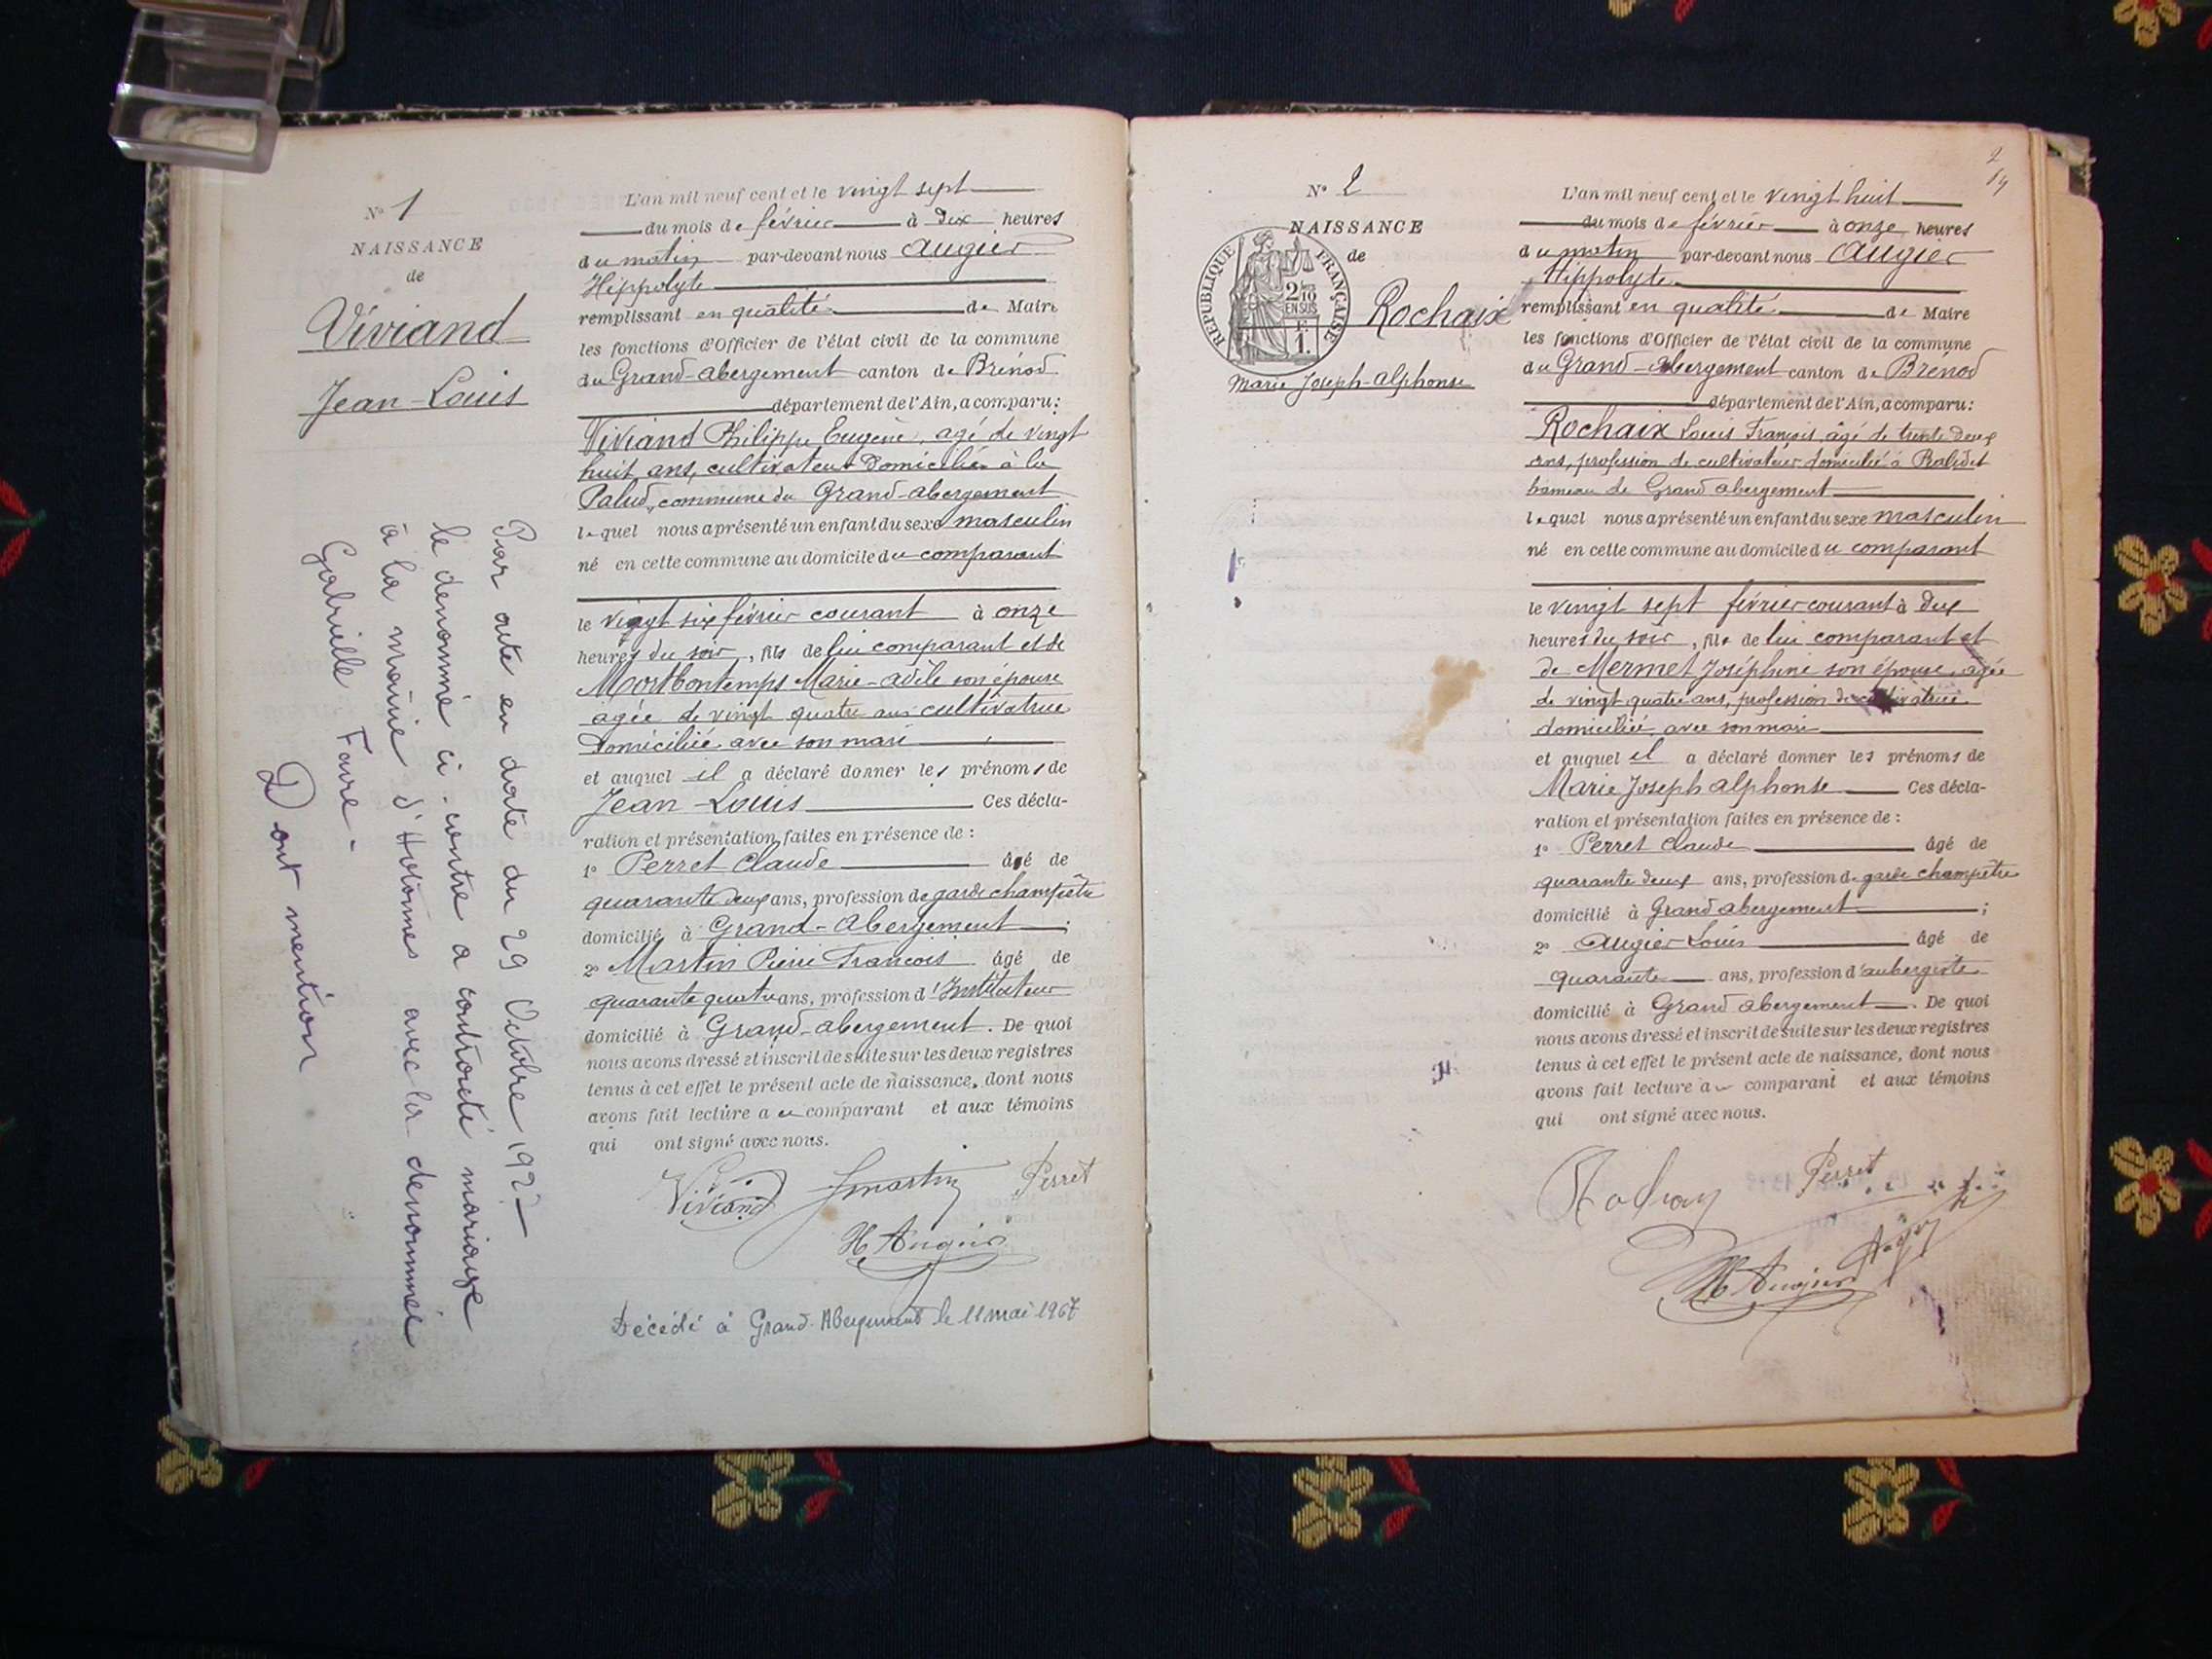 N° 1
NAISSANCE
de
Viviand
Jean-Louis
Par acte en date du 29 Octobre 192
le denommé ci-contre a contracté mariage
à la mairie d'Hotonnes avec la denommée
Gabrielle Favre -
Dont mention
L'an mil neuf cent et le vingt sept
du mois de février à dix heures
du matin par-devant nous Augier
Hippolyte
remplissant en qualité de Maire
les fonctions d'Officier de l'état civil de la commune
du Grand-abergement canton de Brénod
département de l'Ain, a comparu:
Viviand Philippe Eugène, agé de vingt
huit ans, cultivateur domicilié à la
Palud, commune du Grand-abergement
lequel nous a présenté un enfant du sexe masculin
né en cette commune au domicile du comparant
le vingt six février courant à onze
heures du soir, fils de lui comparant et de
Montbontemps Marie-adèle son épouse
agée de vingt quatre ans cultivatrice
domiciliée avec son mari
et auquel il a déclaré donner les prénoms de
Jean-Louis Ces décla-
ration et présentation faites en présence de :
1° Perret Claude âgé de
quarante deux ans, profession de garde champêtre
domicilié à Grand-Abergement ;
2° Martin Pierre François âgé de
quarante quatre ans, profession d'Instituteur
domicilié à Grand-abergement. De quoi
nous avons dressé et inscrit de suite sur les deux registres
tenus à cet effet le présent acte de naissance, dont nous
avons fait lecture au comparant et aux témoins
qui ont signé avec nous.
Viviand Jmartin Perret
H Augier
Décédé à Grand-Abergement le 11 mai 1967
2
N° 2
NAISSANCE
de
REPUBLIQUE FRANÇAISE
2/10
EN SUS
1 F.
Rochaix
Marie Joseph-alphonse
L'an mil neuf cent et le vingt huit
du mois de février à onze heures
du matin par-devant nous Augier
Hippolyte
remplissant en qualité de Maire
les fonctions d'Officier de l'état civil de la commune
du Grand-abergement canton de Brénod
département de l'Ain, a comparu:
Rochaix Louis François, âgé de trente deux
ans, profession de cultivateur domicilié à
hameau de Grand abergement
lequel nous a présenté un enfant du sexe masculin
né en cette commune au domicile du comparant
le vingt sept février courant à dix
heures du soir, fils de lui comparant et
de Mermet Joséphine son épouse, agée
de vingt quatre ans, profession de cultivatrice
domiciliée avec son mari
et auquel il a déclaré donner les prénoms de
Marie Joseph alphonse Ces décla-
ration et présentation faites en présence de :
1° Perret Claude âgé de
quarante deux ans, profession de garde champêtre
domicilié à Grand abergement ;
2° Augier Louis âgé de
quarante ans, profession d'aubergiste
domicilié à Grand abergement. De quoi
nous avons dressé et inscrit de suite sur les deux registres
tenus à cet effet le présent acte de naissance, dont nous
avons fait lecture au comparant et aux témoins
qui ont signé avec nous.
Perret
H Augier